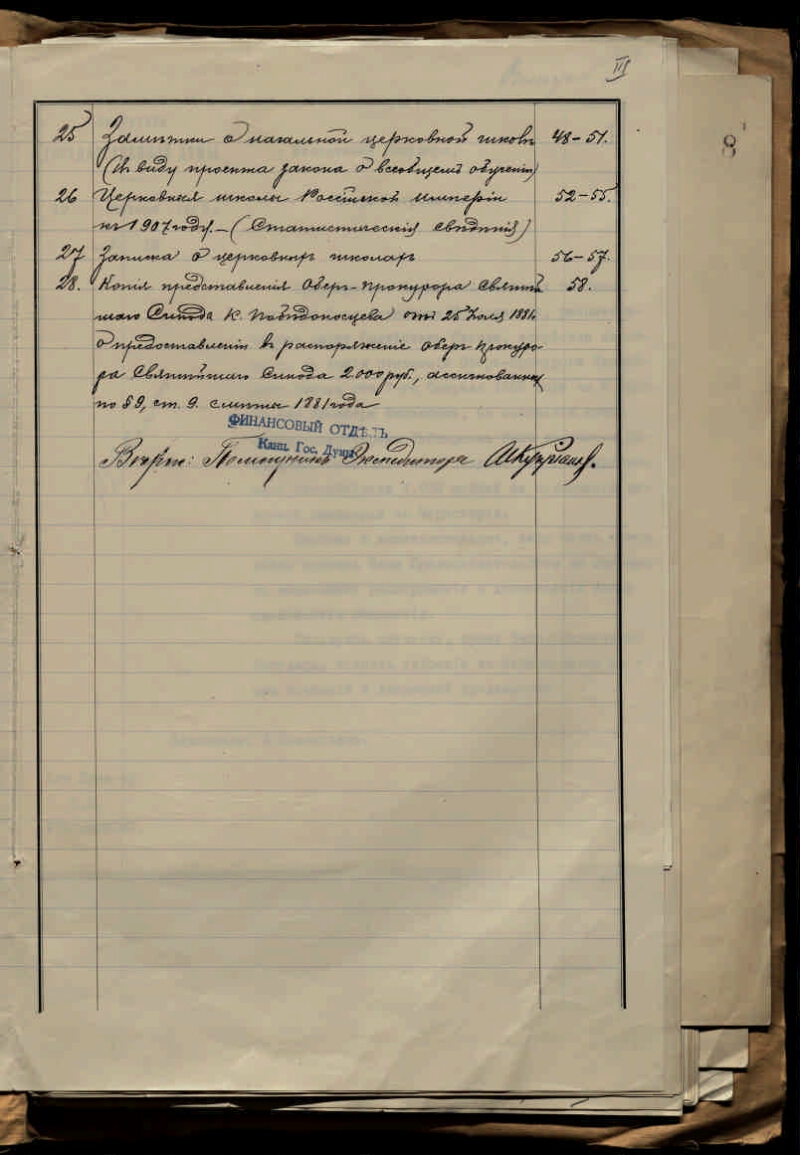 III
8
25 Замѣтки о начальной церковной школѣ 48–51.
(Въ виду проекта закона о всеобщемъ обученіи)
26 Церковныя школы Россійской Имперіи 52–55.
къ 1907 году. – (Статистическія свѣдѣнія)
27 Записка о церковныхъ школахъ 56–57.
28. Копія представленія Оберъ-Прокурора Святѣй 58.
шаго Синода К. Побѣдоносцева отъ 25 Іюля 1881г.
о предоставленіи въ распоряженіе Оберъ Прокуро-
ра Святѣйшаго Синода 2.000 руб., ассигнованныхъ
по § 9, ст. 9. смѣты 1881 года
ФИНАНСОВЫЙ ОТДѢЛЪ
Канц. Гос. Думы
Вѣрно: Помощникъ Экспедитора